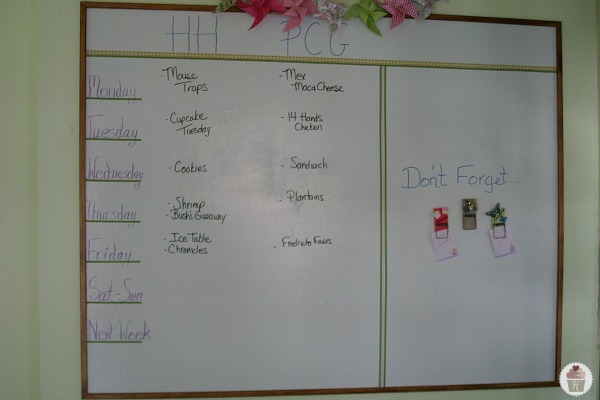 HH PCG
Monday
· Mouse Traps
- Mex Mac & Cheese
Tuesday
· Cupcake Tuesday
- 14 Hands Chicken
Wednesday
· Cookies
· Sandwich
Thursday
· Shrimp
· Bush's Giveaway
- Plantains
Friday
· Ice Table
· Chronicles
Sat-Sun
Next Week
Don't Forget...